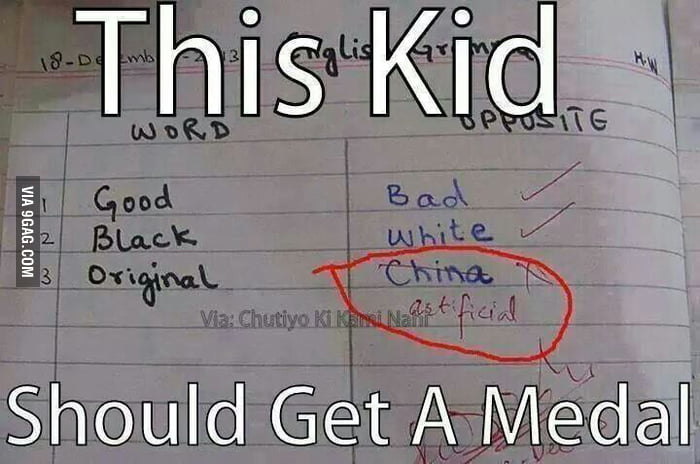 This Kid
English Grammar
H.W
WORD OPPOSITE
1 Good Bad
2 Black White
3 Original China
artificial
Via: Chutiyo Ki Kami Nahi
VIA 9GAG.COM
Should Get A Medal